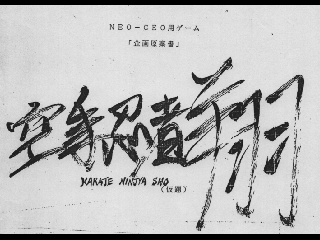 NEO-GEO用ゲーム
「企画原案書」
空手忍者翔
KARATE NINJYA SHO
(仮題)